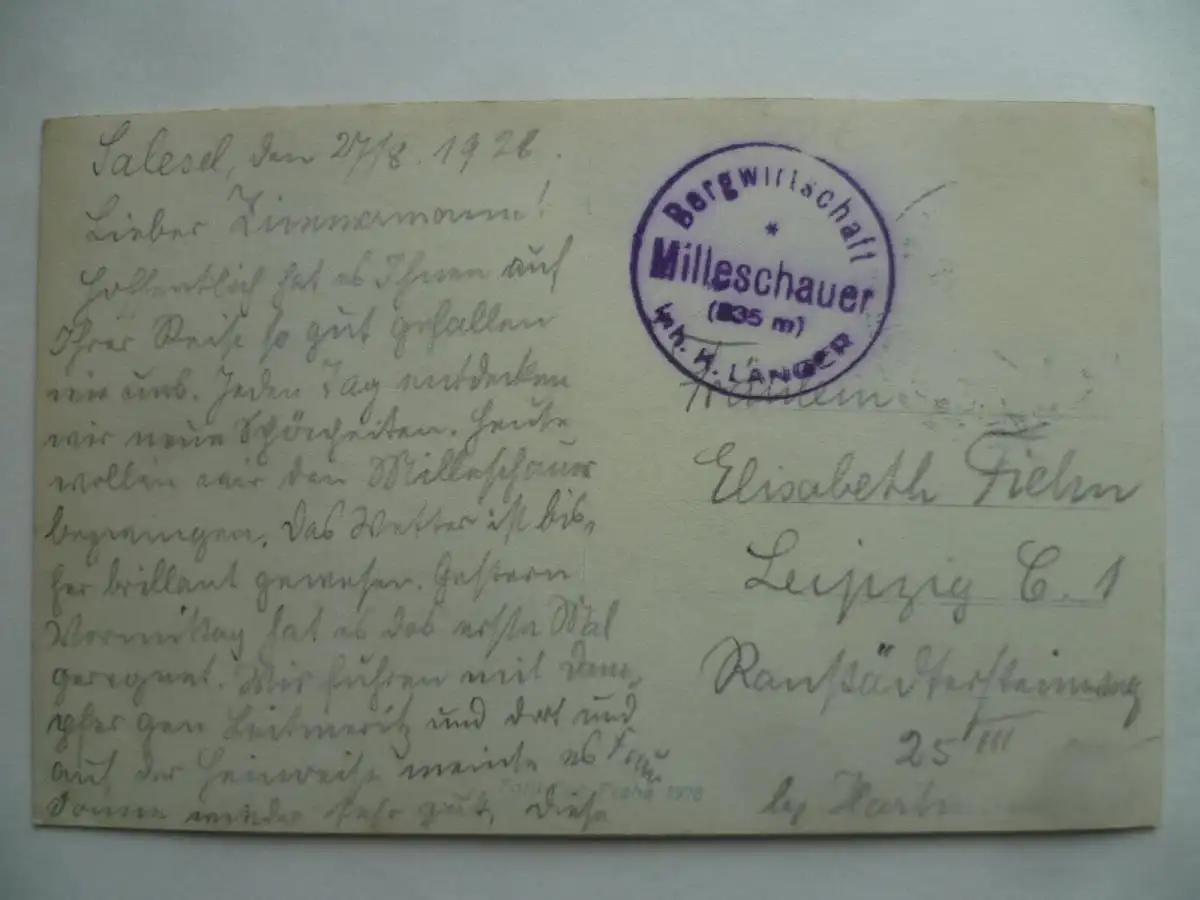 Salesel, den 27/8. 1928.
Lieber Zimmermann!
Hoffentlich hat es Ihnen auf
Ihrer Reise so gut gefallen
wie uns. Jeden Tag entdecken
wir neue Schönheiten. Heute
wollen wir den Milleschauer
bezwingen. Das Wetter ist bis-
her brillant gewesen. Gestern
Vormittag hat es das erste Mal
geregnet. Wir fuhren mit Dam-
pfer gen Leitmeritz und dort und
auf der Heimreise meinte es Frau
Sonne wieder sehr gut. Diese
Bergwirtschaft
*
Milleschauer
(835 m)
Inh. H. LANGER
Fräulein
Elisabeth Fiehn
Leipzig C. 1
Ranstädtersteinweg
25 III